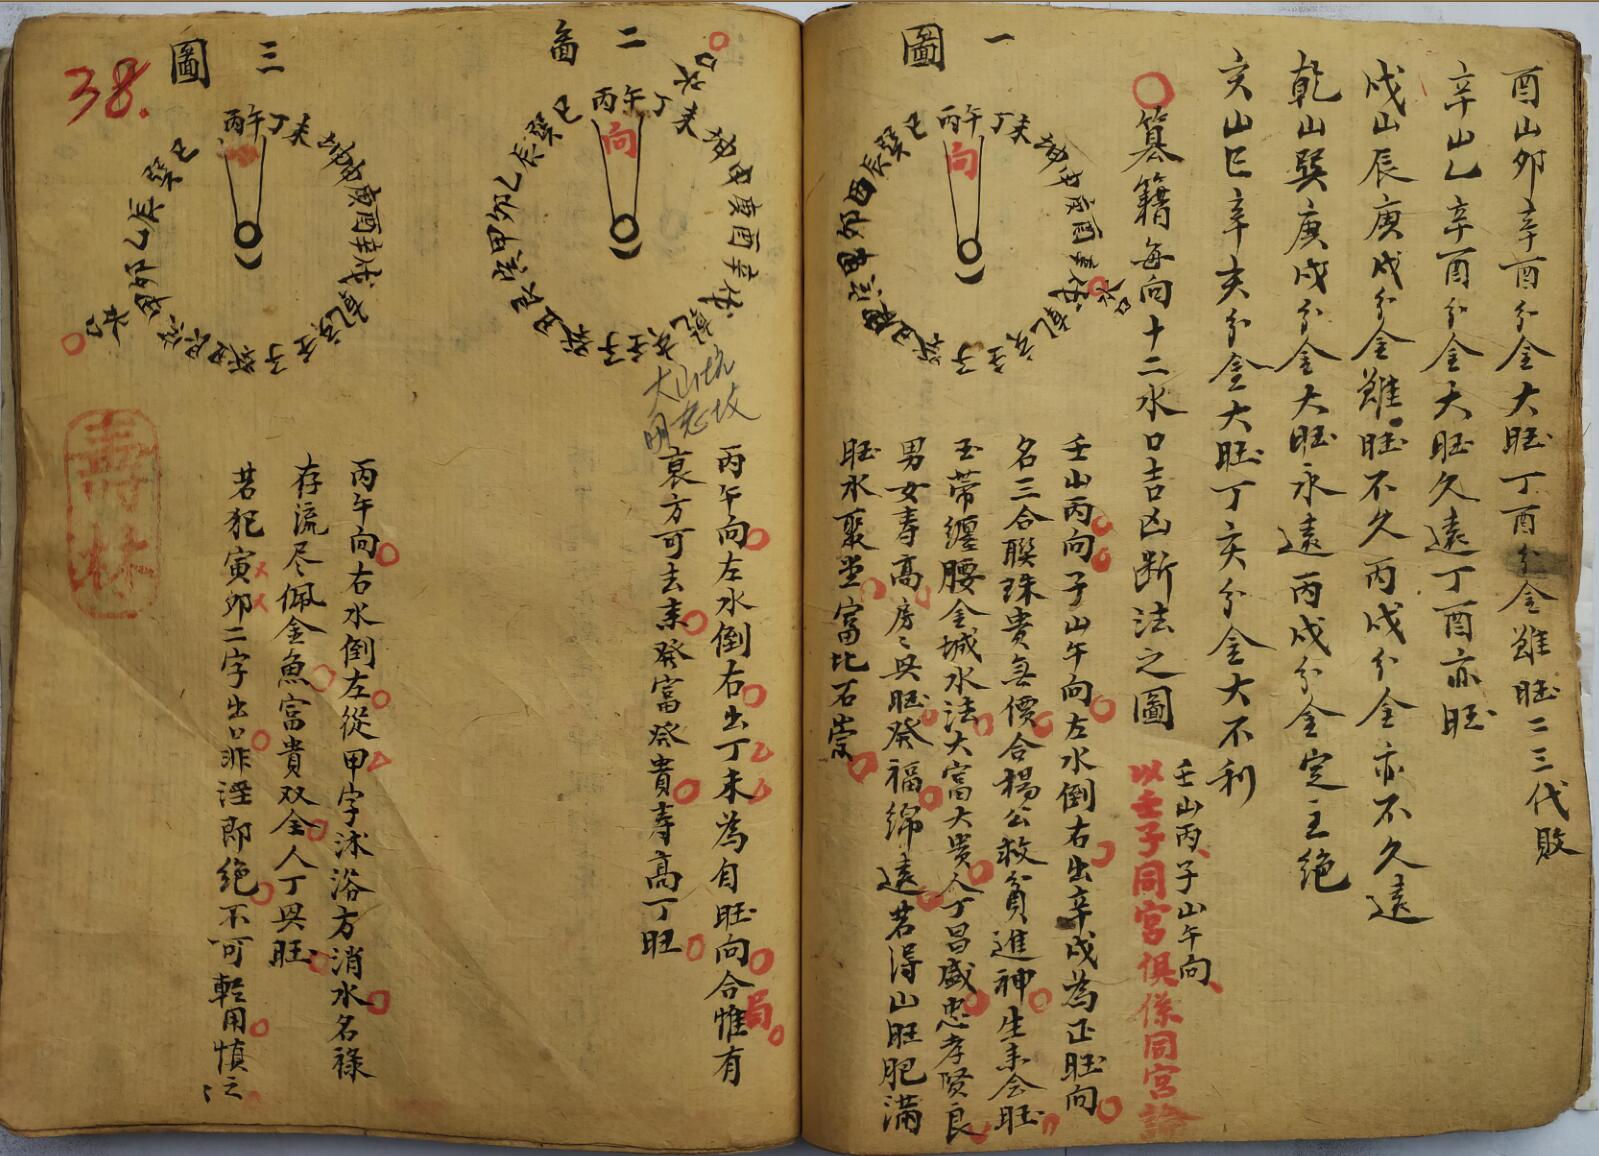 酉山卯辛酉分金大旺丁酉分金雖旺二三代敗
辛山乙辛酉分金大旺久遠丁酉亦旺
戌山辰庚戌分金雖旺不久丙戌分金亦不久遠
乾山巽庚戌分金大旺永遠丙戌分金定主絕
亥山巳辛亥分金大旺丁亥分金大不利
墓籍每向十二水口吉凶斷法之圖
壬山丙、子山午向、
以壬子同宮俱係同宮論
圖一
丙午丁未
向
水口
壬山丙向子山午向左水倒右出辛戌為正旺向
名三合聯珠貴無價合楊公救貧進神生來会旺
玉带纏腰金城水法大富大贵人丁昌盛忠孝賢良
男女寿高房々興旺發福綿遠若得山旺肥滿
旺水聚堂富比石崇
圖二
丙午丁未
向
水口
丙午向左水倒右出丁未為自旺向合惟有
局
衰方可去来發富發貴寿高丁旺
圖三
丙午丁未
水口
丙午向右水倒左從甲字沐浴方消水名祿
存流尽佩金魚富貴双全人丁興旺
若犯寅卯二字出口非淫即絕不可輕用慎之
38.
寿林